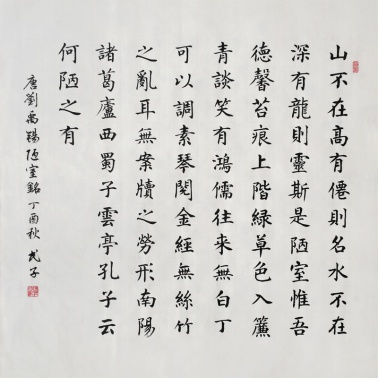 山不在高有僊則名水不在
深有龍則靈斯是陋室惟吾
德馨苔痕上階綠草色入簾
青談笑有鴻儒往來無白丁
可以調素琴閱金經無絲竹
之亂耳無案牘之勞形南陽
諸葛廬西蜀子雲亭孔子云
何陋之有
唐劉禹錫陋室銘丁酉秋